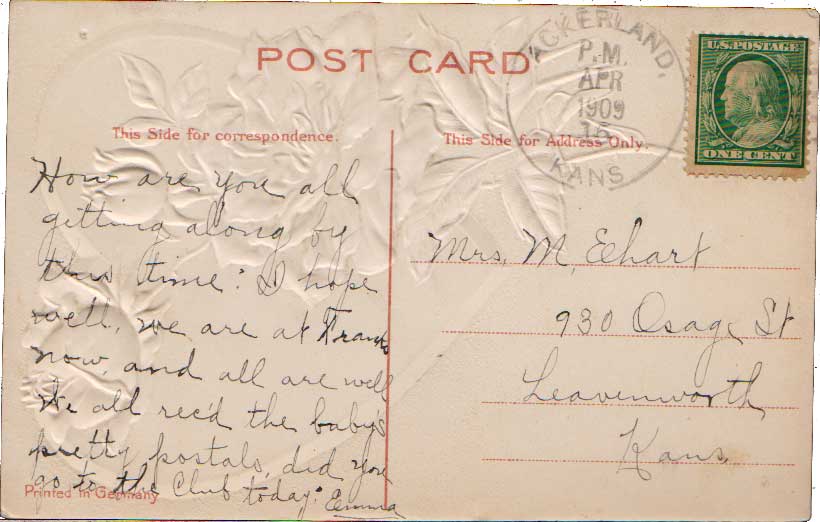 POST CARD
This Side for correspondence.
This Side for Address Only.
ACKERLAND,
P.M.
APR
15
1909
KANS
U.S. POSTAGE
ONE CENT
How are you all
getting along by
this time? I hope
well, we are at Franks
now, and all are well
We all rec'd the baby's
pretty postals, did you
go to the Club today? Emma
Printed in Germany
Mrs. M, Eehart
930 Osage St
Leavenworth
Kans.